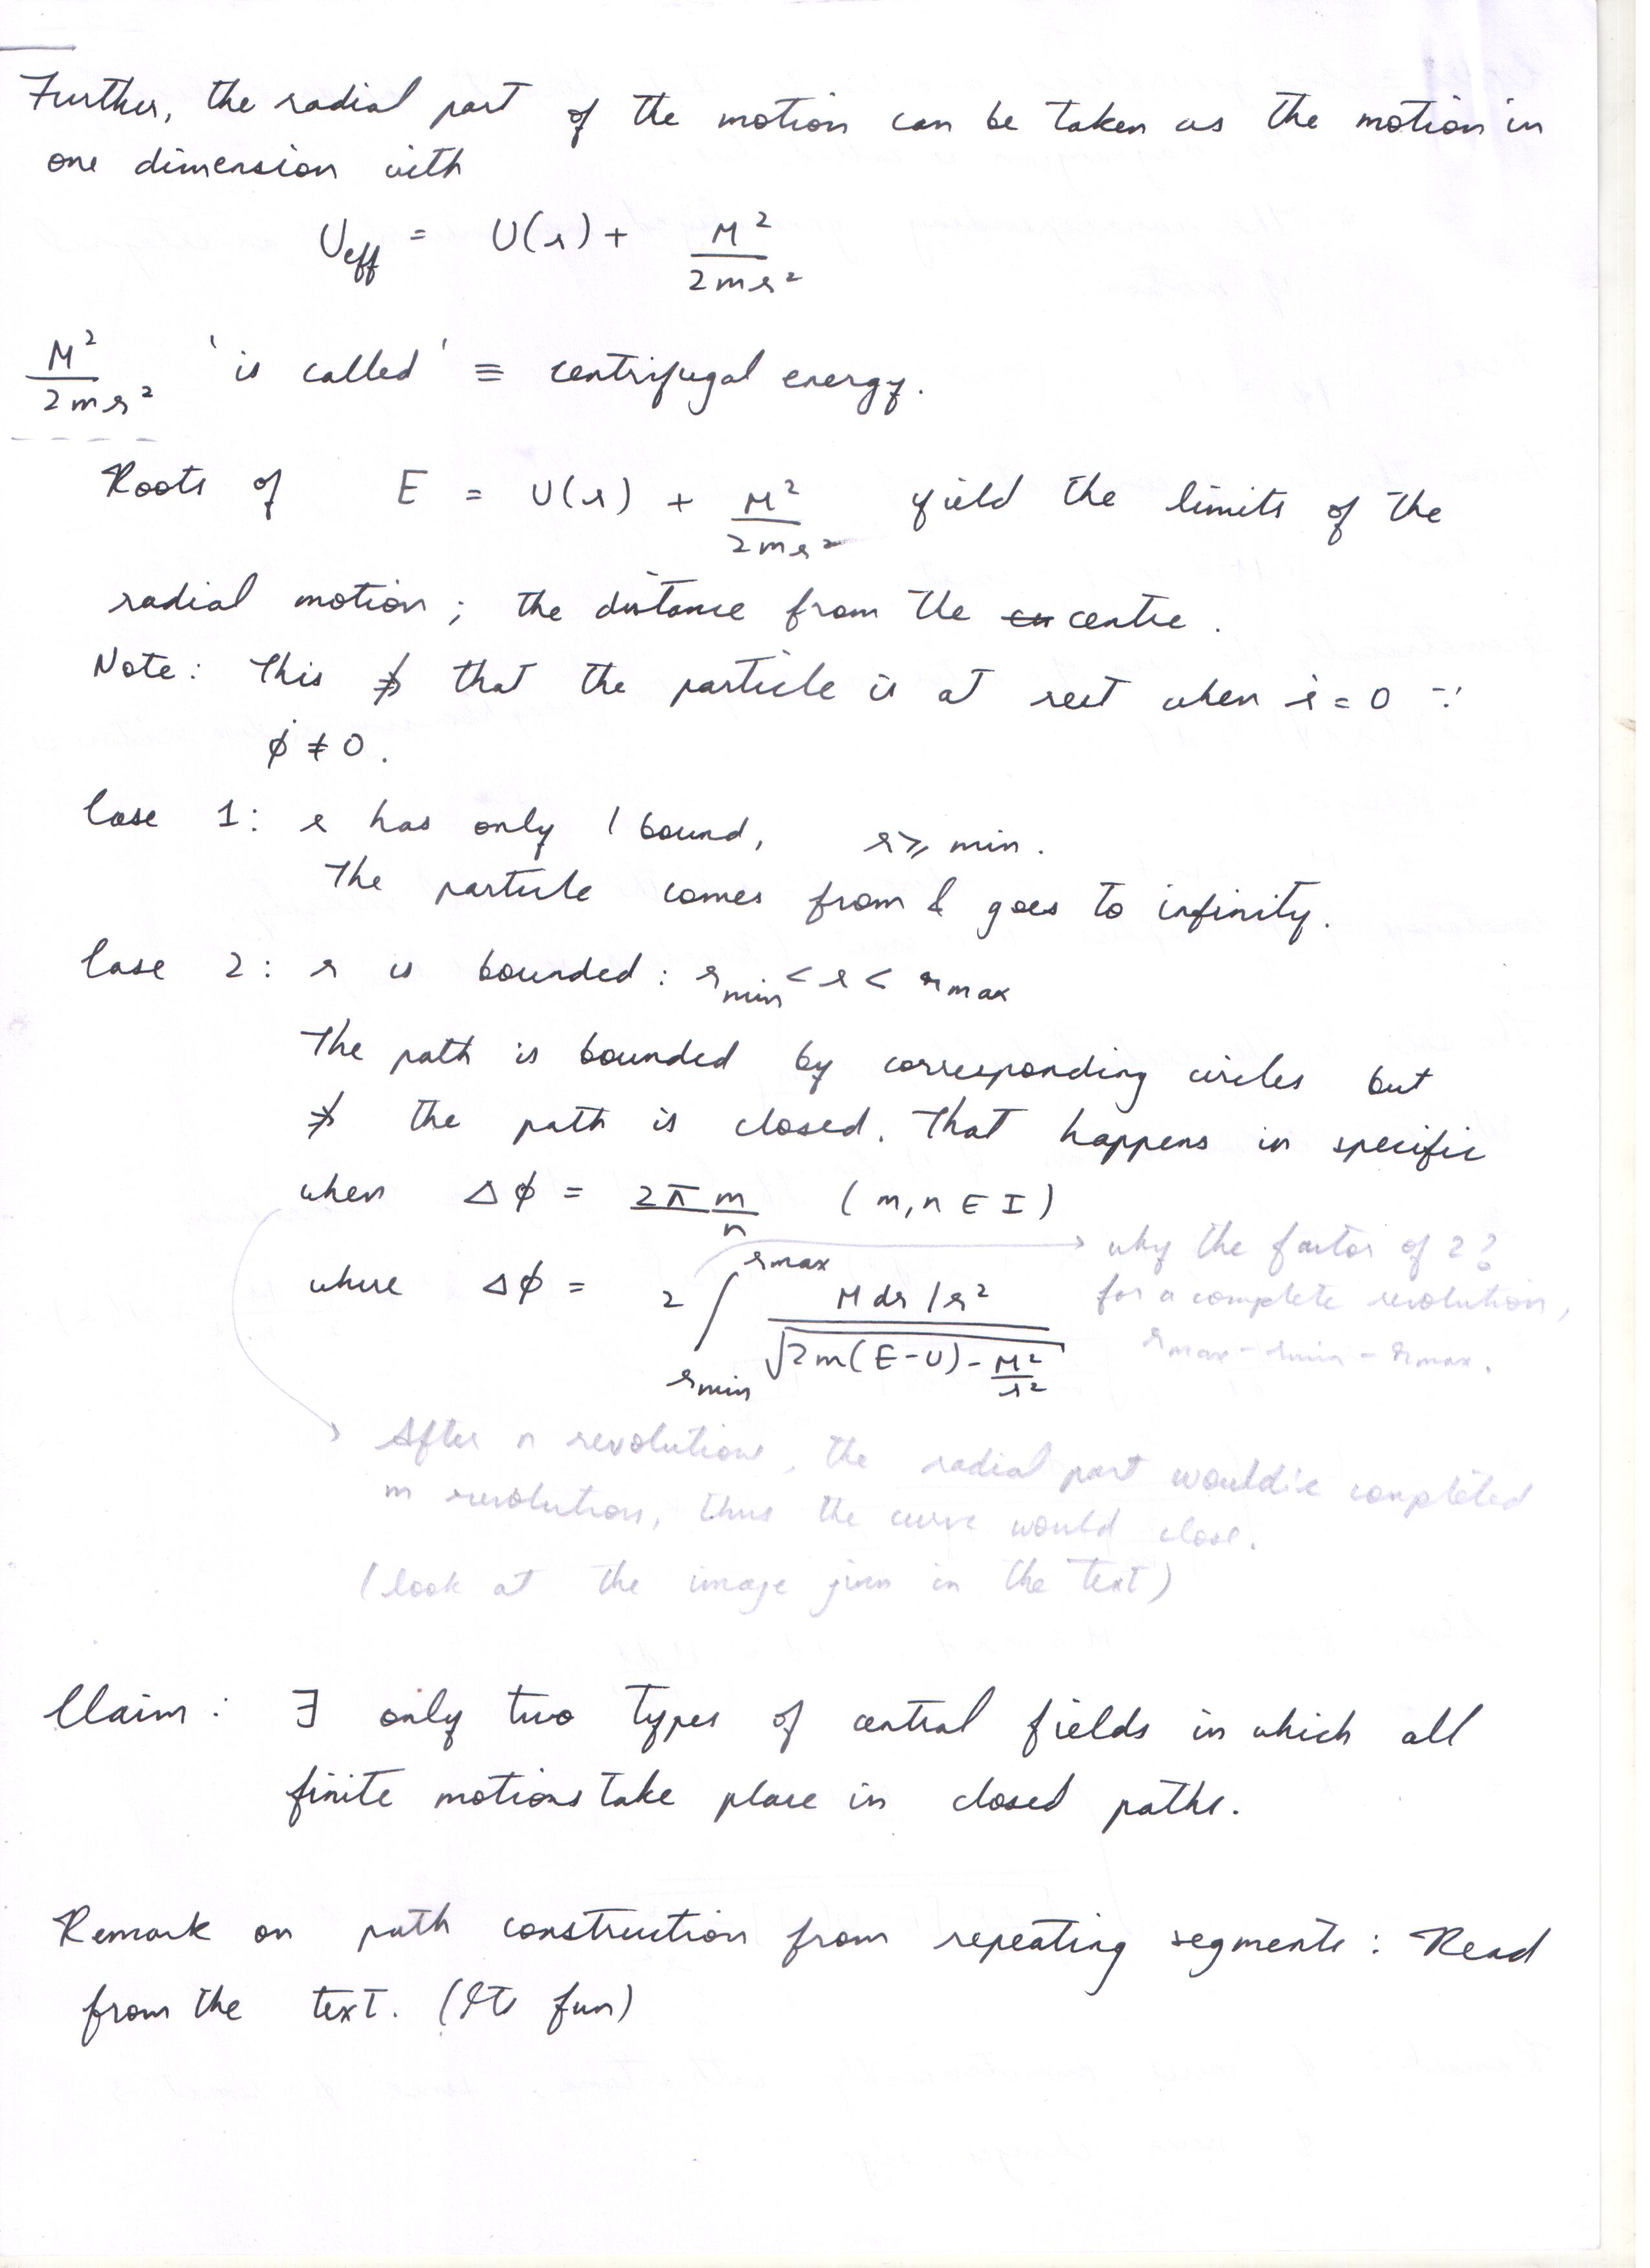 Further, the radial part of the motion can be taken as the motion in
one dimension with
U_eff = U(r) + M²/2mr²
M²/2mr² 'is called' ≡ centrifugal energy.
Roots of E = U(r) + M²/2mr² yield the limits of the
radial motion; the distance from the centre.
Note: This ⇏ that the particle is at rest when ṙ = 0 ∵
φ̇ ≠ 0.
Case 1: r has only 1 bound, r ⩾ min.
The particle comes from & goes to infinity.
Case 2: r is bounded: r_min < r < r_max
The path is bounded by corresponding circles but
⇏ the path is closed. That happens in specific
when Δφ = 2π m/n (m, n ∈ I)
why the factor of 2?
where Δφ = 2 ∫_{r_min}^{r_max} (M dr / r²) / √(2m(E-U) - M²/r²)
for a complete revolution,
r_max - r_min - r_max.
After n revolutions, the radial part would've completed
m revolutions, thus the curve would close.
(look at the image given in the text)
Claim: ∃ only two types of central fields in which all
finite motions take place in closed paths.
Remark on path construction from repeating segments: Read
from the text. (Its fun)